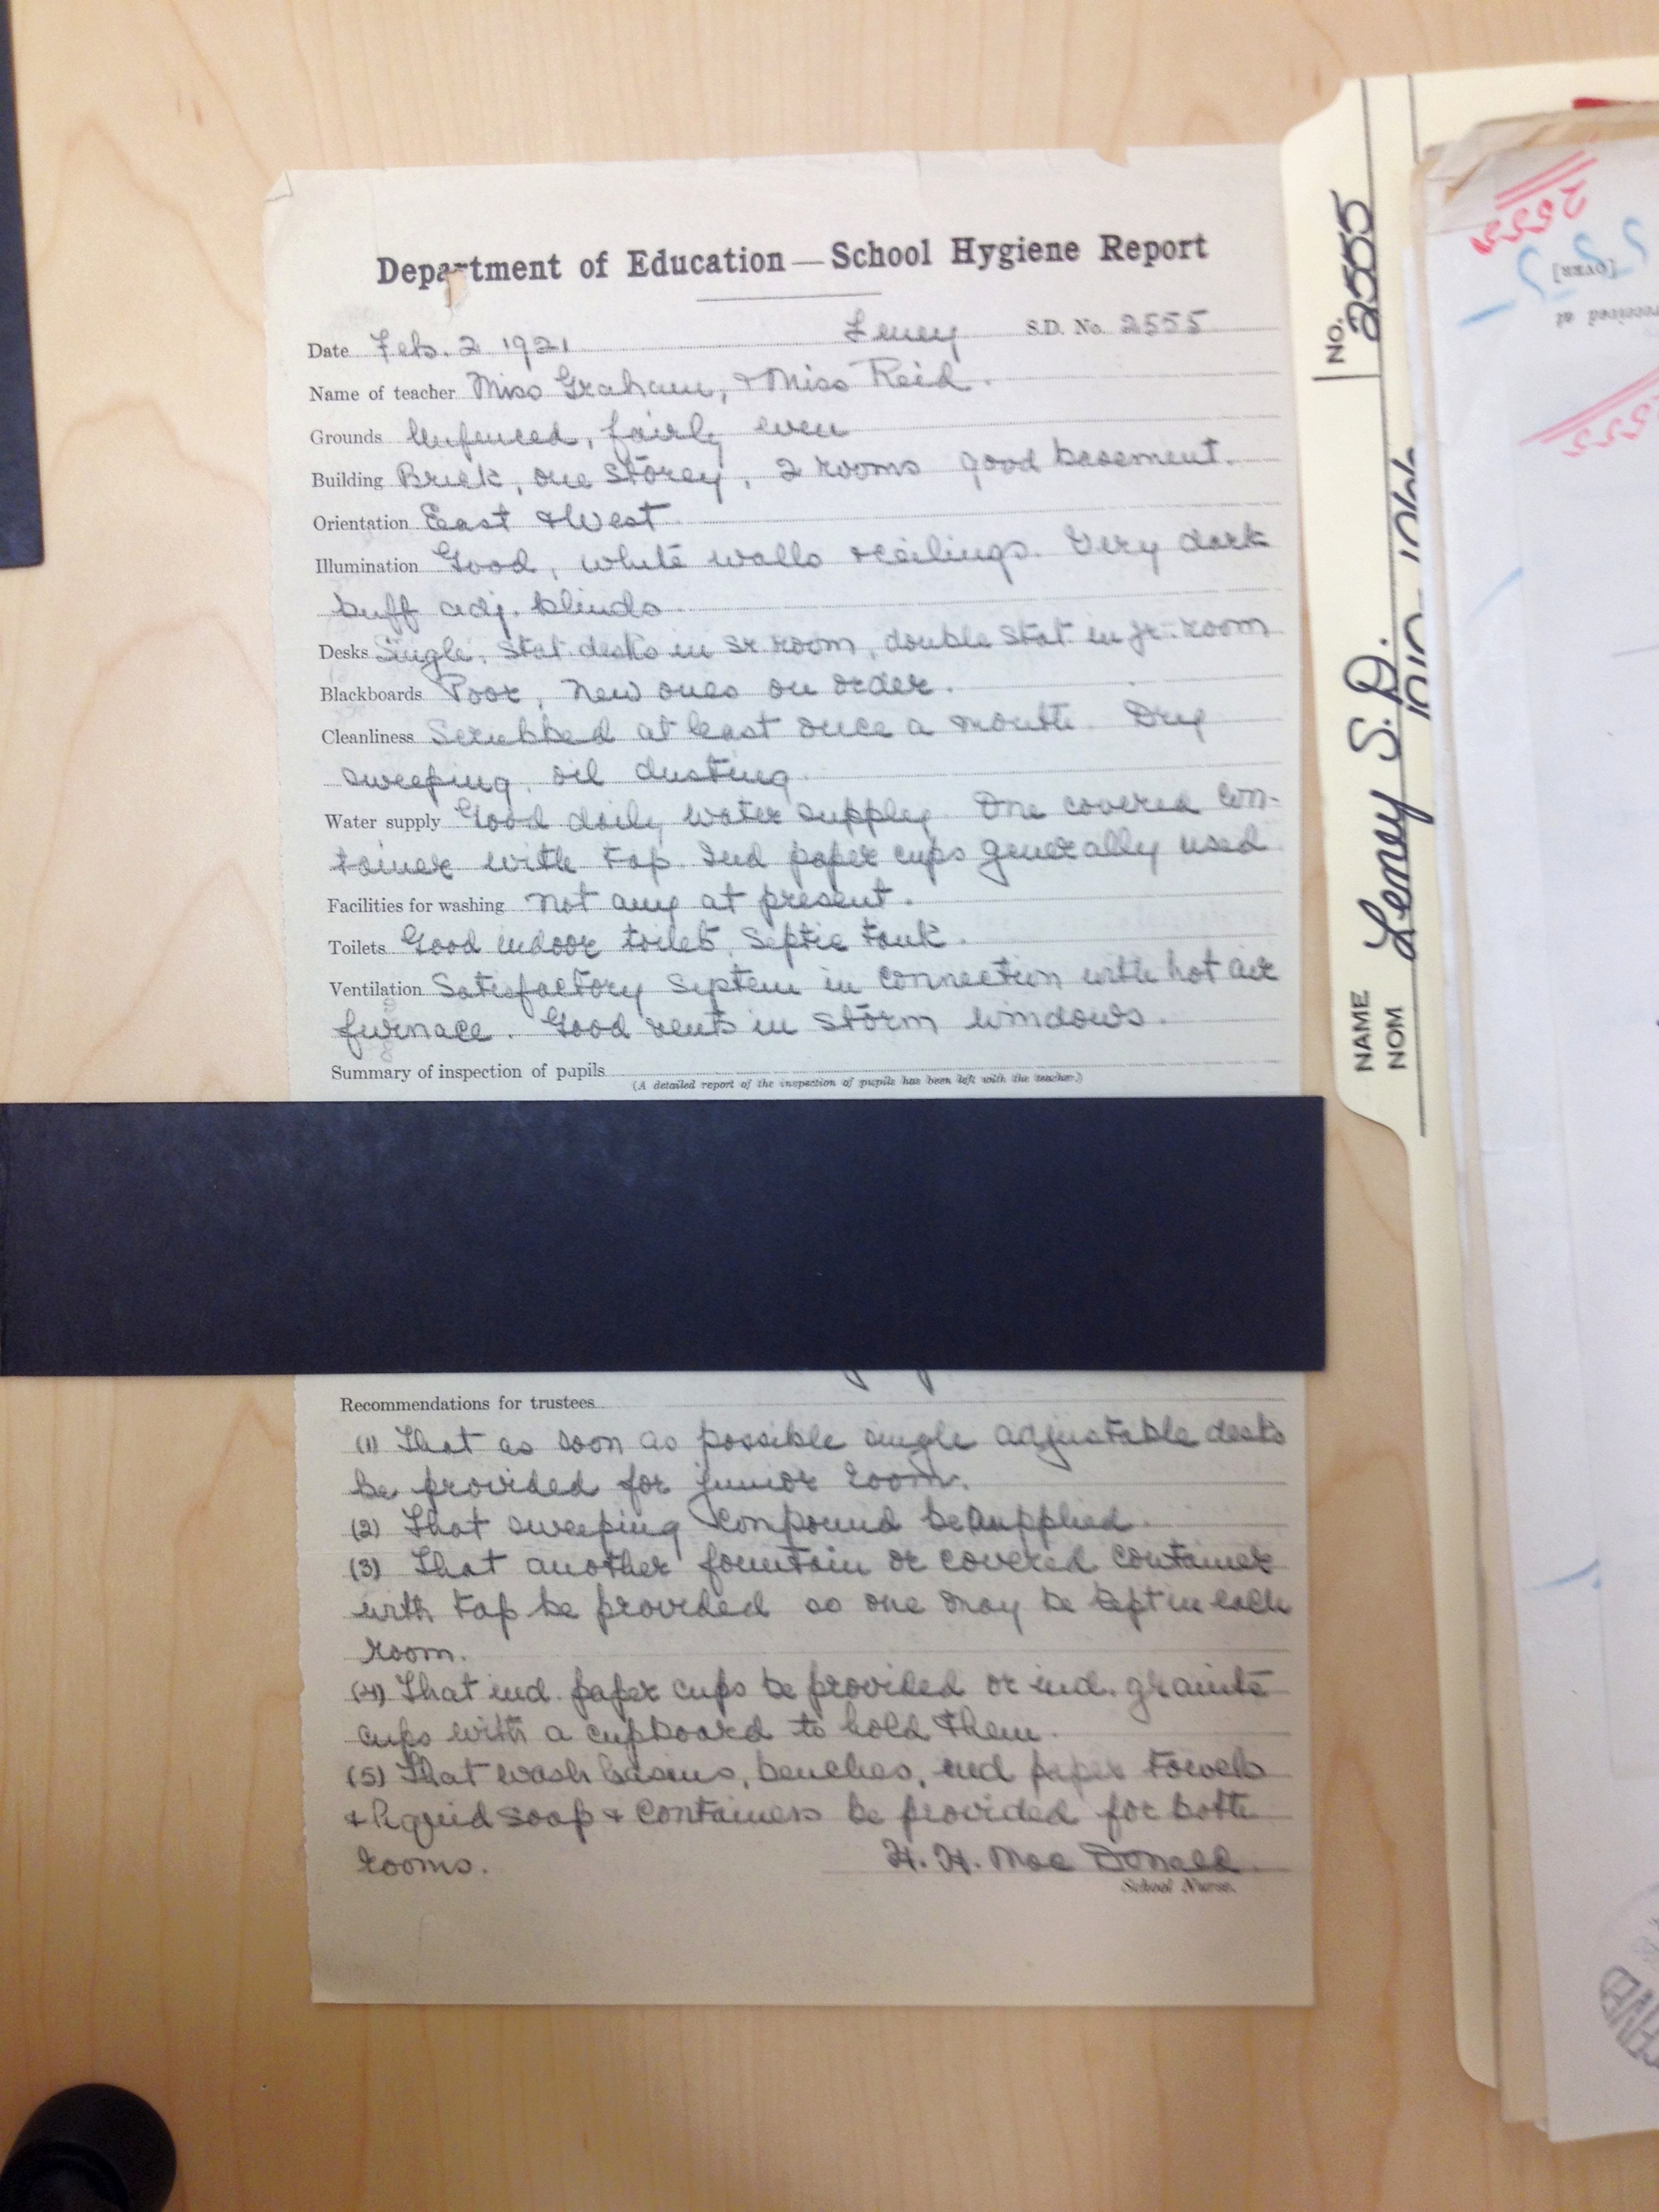 Department of Education — School Hygiene Report
Date Feb. 2 1921 Leney S.D. No. 2555
Name of teacher Miss Graham, & Miss Reid.
Grounds Unfenced, fairly even
Building Brick, one storey, 2 rooms good basement.
Orientation East & West
Illumination Good, white walls & ceilings. Very dark
buff adj. blinds
Desks Single, Stat desks in sr room, double stat in jr. room
Blackboards Poor, new ones on order.
Cleanliness Scrubbed at least once a month. Dry
sweeping, oil dusting
Water supply Good daily water supply. One covered con-
tainer with tap. Ind paper cups generally used
Facilities for washing not any at present.
Toilets Good indoor toilets, Septic tank.
Ventilation Satisfactory System in connection with hot air
furnace. Good vents in storm windows.
Summary of inspection of pupils
(A detailed report of the inspection of pupils has been left with the teacher.)
Recommendations for trustees
(1) That as soon as possible single adjustable desks
be provided for junior room.
(2) That sweeping compound be supplied.
(3) That another fountain or covered container
with tap be provided so one may be kept in each
room.
(4) That ind. paper cups be provided or ind. granite
cups with a cupboard to hold them.
(5) That wash basins, benches, ind paper towels
& liquid soap & containers be provided for both
rooms.
H. H. Mac Donald
School Nurse.
NO. 2555
NAME Leney S.D.
NOM
2555
[OVER]
received at
2555